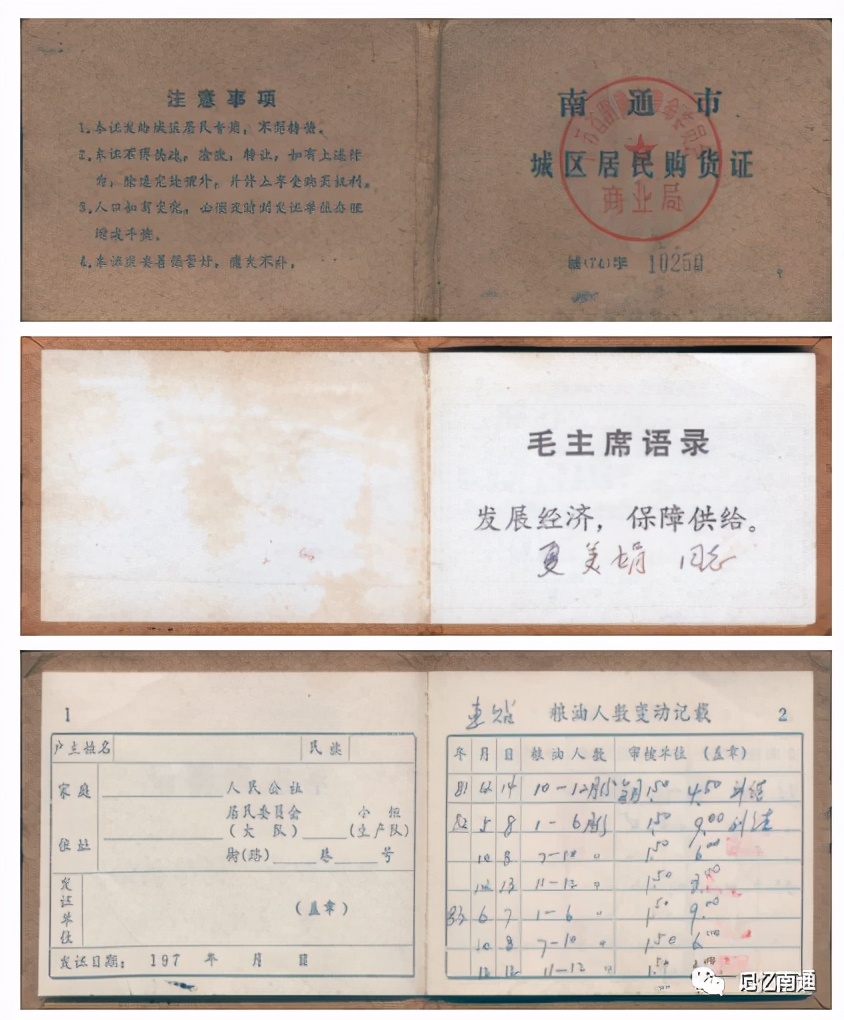 注意事项
1.本证发给城区居民，不得转借。
2.本证不得伪造，涂改，转让，如有上述行
为，除追究处理外，并停止享受购买权利。
3.人口如有变化，必须及时到发证单位办理
增减手续。
4.本证应妥善保管好，遗失不补。
南通市
城区居民购货证
商业局
(74)字 10250
毛主席语录
发展经济，保障供给。
夏美娟 同志
1
户主姓名 民族
家庭 人民公社
居民委员会 小组
(大队) (生产队)
住址 街(路) 巷 号
发证单位 (盖章)
发证日期： 197 年 月 日
粮油人数变动记载 2
年 月 日 粮油人数 审核单位 (盖章)
81 12 14 10—12月份 每月1.50 4.50
82 5 8 1—6月份 1.50 9.00
10 8 7—10 〃 1.50 6.00
12 13 11—12 〃 1.50 3.00
83 6 7 1—6 〃 1.50 9.00
10 8 7—10 〃 1.50 6.00
12 12 11—12 〃 1.50
回忆南通